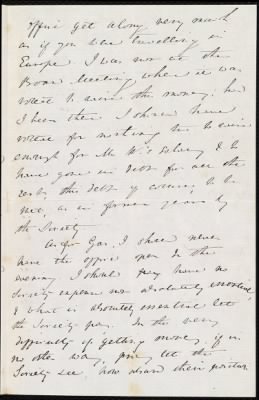 office get along, very much
as if you were travelling in
Europe. I was not at the
Board meeting when it was
voted to raise the money. Had
I been there I should have
voted for nothing but to raise
enough for Mr W's salary & to
have gone in debt for all the
rest, this debt of course, to be
met, as in former years by
the Society.
As for Gas, I shall never
have the office open in the
evening. I should say have no
Society expense not absolutely essential,
& what is absolutely essential let
the Society pay. In the very
difficulty of getting money, if in
no other way, pray let the
Society see, how absurd their position